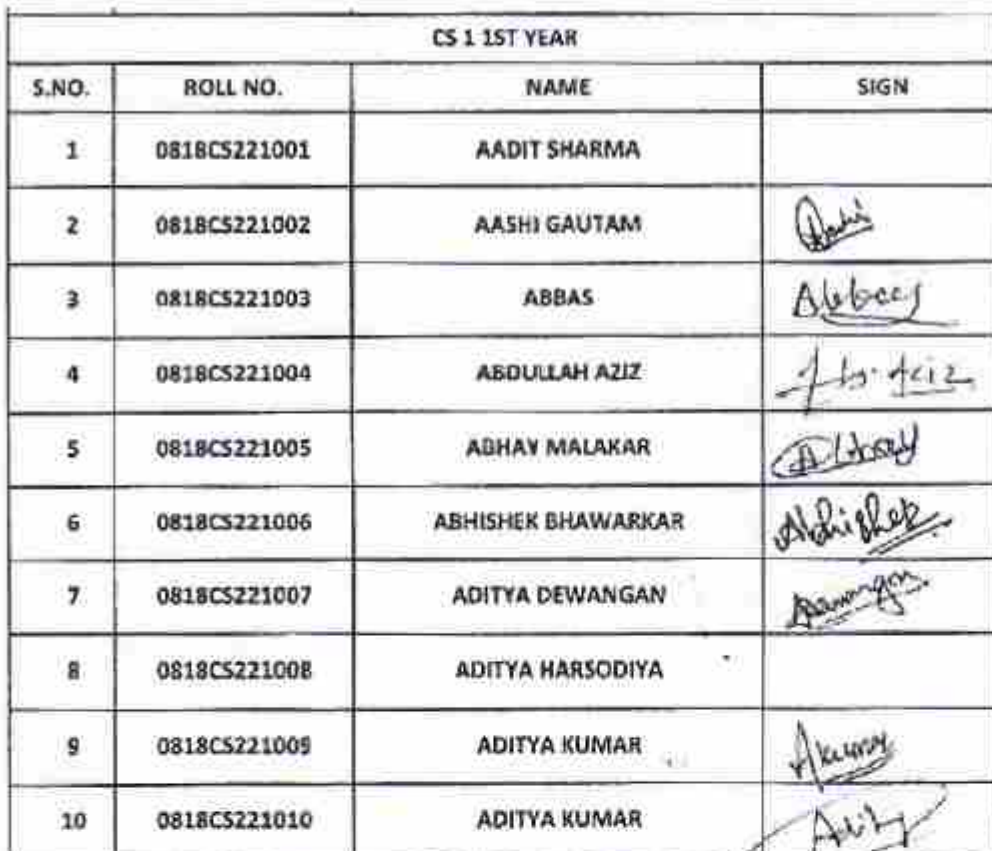 CS 1 1ST YEAR
S.NO. ROLL NO. NAME SIGN
1 0818CS221001 AADIT SHARMA
2 0818CS221002 AASHI GAUTAM
3 0818CS221003 ABBAS Abbas
4 0818CS221004 ABDULLAH AZIZ Aziz
5 0818CS221005 ABHAY MALAKAR Abhay
6 0818CS221006 ABHISHEK BHAWARKAR Abhishek
7 0818CS221007 ADITYA DEWANGAN
8 0818CS221008 ADITYA HARSODIYA
9 0818CS221009 ADITYA KUMAR
10 0818CS221010 ADITYA KUMAR